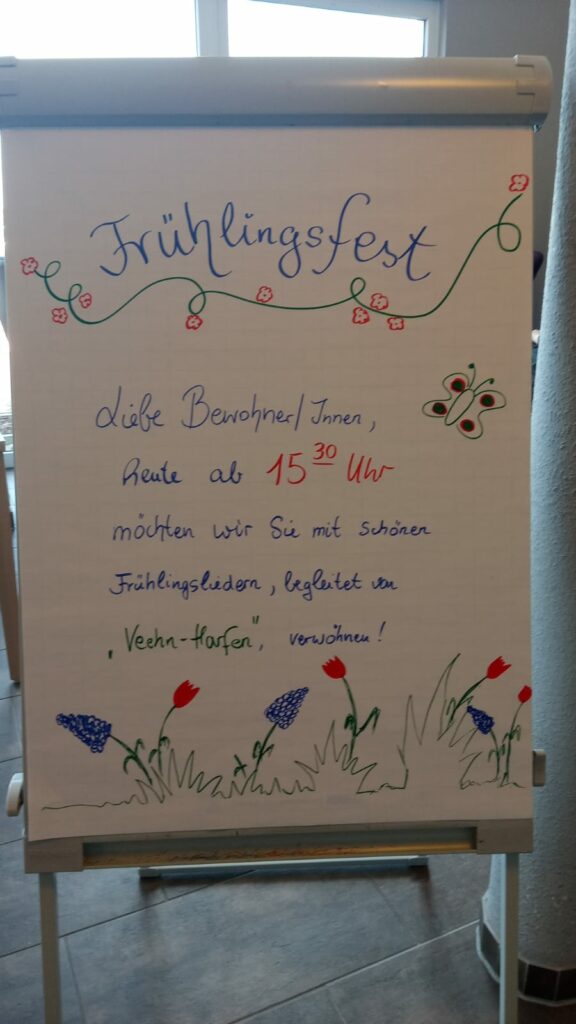 Frühlingsfest
Liebe Bewohner/Innen,
heute ab 15 30 Uhr
möchten wir Sie mit schönen
Frühlingsliedern, begleitet von
„Veehn-Harfen", verwöhnen!